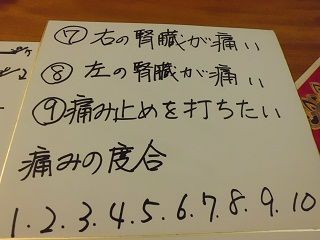 ⑦右の腎臓が痛い
⑧左の腎臓が痛い
⑨痛み止めを打ちたい
痛みの度合
1.2.3.4.5.6.7.8.9.10